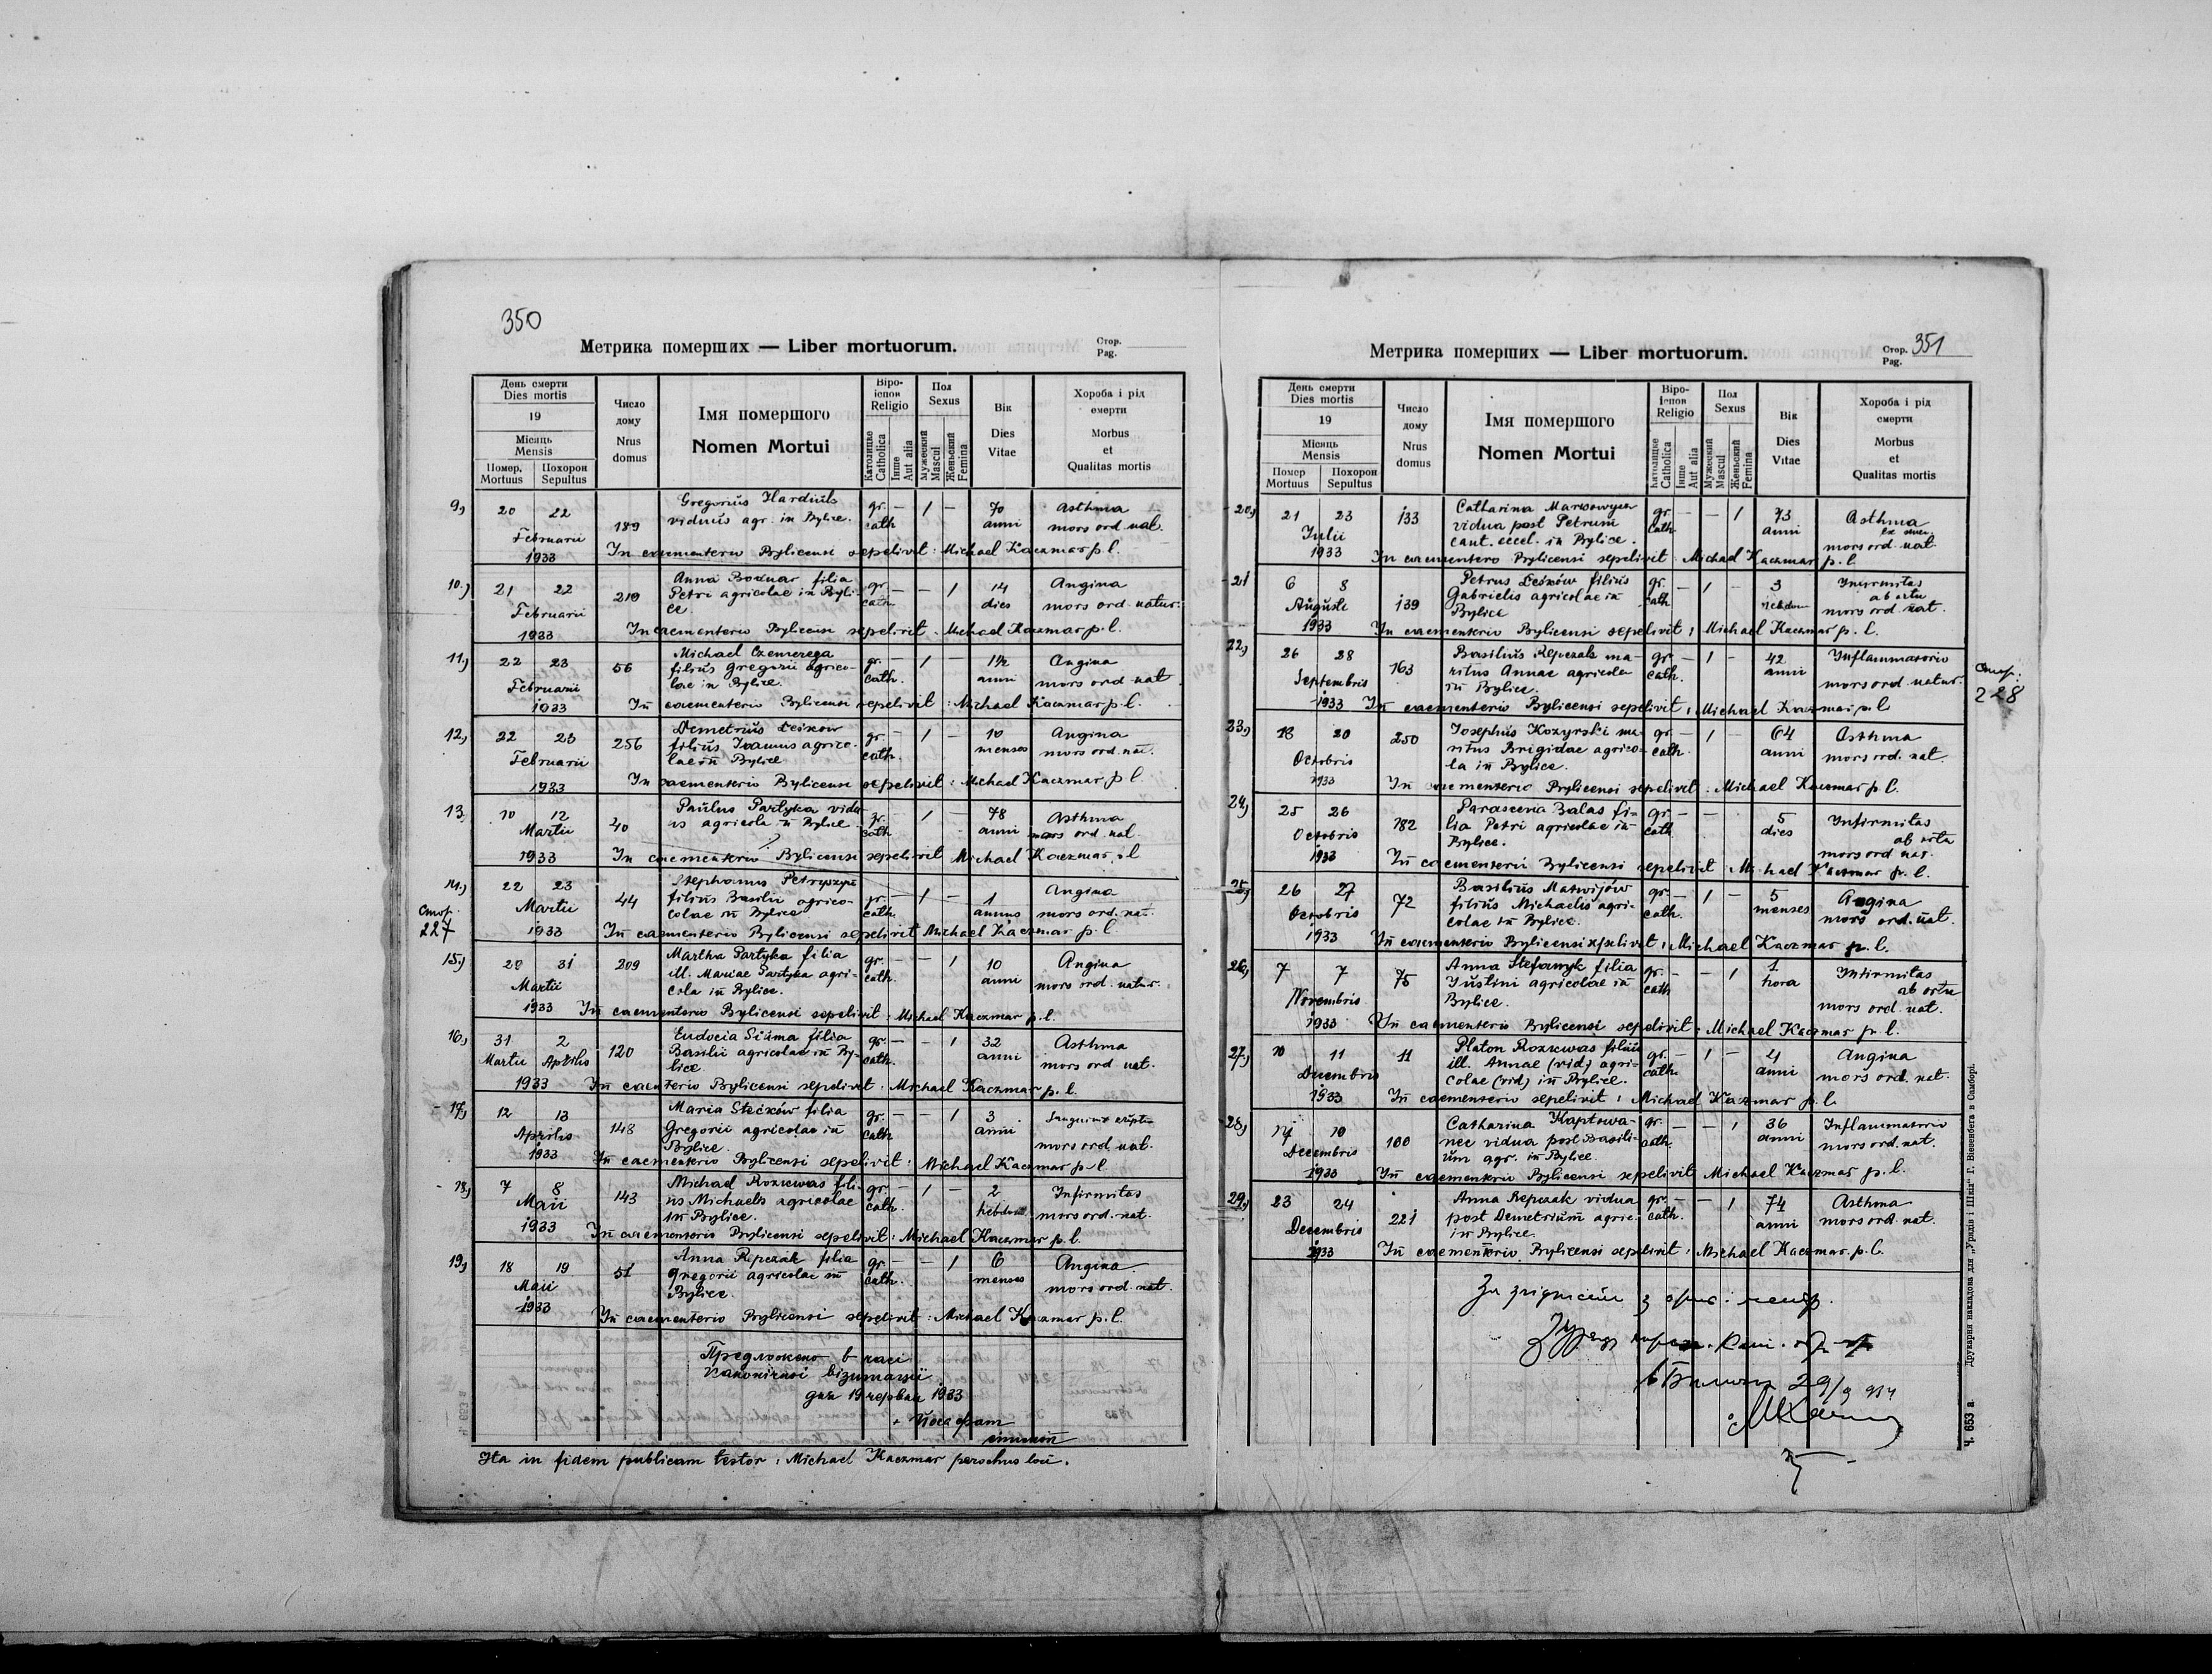 350
Метрика померших — Liber mortuorum.
Стор.
Pag.
День смерти
Dies mortis
19
Місяць
Mensis
Помер. Похорон
Mortuus Sepultus
Число
дому
Nrus
domus
Імя помершого
Nomen Mortui
Віро-
іспов
Religio
Католицке
Catholica
Інше
Aut alia
Пол
Sexus
Мужеский
Mascul
Женьский
Femina
Вік
Dies
Vitae
Хороба і рід
смерти
Morbus
et
Qualitas mortis
9) 20 22 189 Gregorius gr. — 1 — 70 Asthma
viduus agr. in Bylice. cath anni mors ord. nat.
Februarii
1933 In caementerio Bylicensi sepelivit : Michael Kaczmar p. l.
10.) 21 22 210 Anna Bodnar filia gr. — — 1 14 Angina
Petri agricolae in Byli- cath. dies mors ord. natur.
Februarii ce.
1933 In caementerio Bylicensi sepelivit : Michael Kaczmar p. l.
11) 22 23 56 Michael Czemerega gr. — 1 — 1½ Angina
filius Gregorii agrico- cath. anni mors ord. nat
Februarii lae in Bylice.
1933 In caementerio Bylicensi sepelivit : Michael Kaczmar p. l.
12) 22 23 256 Demetrius Leśków gr. — 1 — 10 Angina
filius Ioannis agrico- cath. menses mors ord. nat.
Februarii lae in Bylice
1933 In caementerio Bylicensi sepelivit : Michael Kaczmar p. l.
13. 10 12 40 Paulus Partyka vidu- gr. — 1 — 78 Asthma
Martii us agricola in Bylice cath. anni mors ord. nat.
1933 In caementerio Bylicensi sepelivit Michael Kaczmar p. l
14.) 22 23 44 Stephanus Petryszyn gr. — 1 — 1 Angina
Martii filius Basilii agrico- cath. annus mors ord. nat.
Стор. colae in Bylice
227
1933 In caementerio Bylicensi sepelivit Michael Kaczmar p. l.
15) 20 31 209 Martha Partyka filia gr. — — 1 10 Angina
Martii ill. Mariae Partyka agri- cath. anni mors ord. natur.
cola in Bylice.
1933 In caementerio Bylicensi sepelivit : Michael Kaczmar p. l.
16) 31 2 120 Eudocia filia gr. — — 1 32 Asthma
Martii Aprilis Basilii agricolae in By- cath. anni mors ord nat.
lice.
1933 In caementerio Bylicensi sepelivit : Michael Kaczmar p. l.
17) 12 13 148 Maria Stećków filia gr. — — 1 3
Aprilis Gregorii agricolae in cath. anni mors ord. nat.
Bylice.
1933 In caementerio Bylicensi sepelivit : Michael Kaczmar p. l
18) 7 8 143 Michael Rozkwas fili- gr. — 1 — 2 Infirmitas
Maii us Michaelis agricolae cath. hebdom. mors ord. nat.
in Bylice.
1933 In caementerio Bylicensi sepelivit : Michael Kaczmar p. l.
19) 18 19 51 Anna Repczak filia gr. — — 1 6 Angina
Maii Gregorii agricolae in cath. menses mors ord. nat.
Bylice.
1933 In caementerio Bylicensi sepelivit : Michael Kaczmar p. l.
Предложено в часі
канонічної візитації
дня 19 червня 1933
+ Йосафат
єпископ
Ita in fidem publicam testor : Michael Kaczmar parochus loci.
Метрика померших — Liber mortuorum.
Стор. 351
Pag.
День смерти
Dies mortis
19
Місяць
Mensis
Помер Похорон
Mortuus Sepultus
Число
дому
Nrus
domus
Імя помершого
Nomen Mortui
Віро-
іспов
Religio
Католицке
Catholica
Інше
Aut alia
Пол
Sexus
Мужеский
Mascul
Женьский
Femina
Вік
Dies
Vitae
Хороба і рід
смерти
Morbus
et
Qualitas mortis
20) 21 23 133 Catharina gr. — — 1 73 Asthma
Julii vidua post Petrum cath. anni
cant. eccl. in Bylice. mors ord. nat
1933 In caementerio Bylicensi sepelivit : Michael Kaczmar p. l
21 6 8 139 Petrus Leśków filius gr. — 1 — 3 Infirmitas
Augusti Gabrielis agricolae in cath hebdom ab ortu
Bylice mors ord. nat.
1933 In caementerio Bylicensi sepelivit : Michael Kaczmar p. l.
22) 26 28 163 Basilius Repczak ma- gr. — 1 — 42 Inflammatorio
Septembris ritus Annae agricola cath. anni mors ord. natur.
in Bylice.
1933 In caementerio Bylicensi sepelivit : Michael Kaczmar p. l
Стор.
228
23) 18 20 250 Josephus Kozyrski ma- gr. — 1 — 64 Asthma
Octobris ritus Brigidae agrico- cath. anni mors ord. nat.
la in Bylice.
1933 In caementerio Bylicensi sepelivit : Michael Kaczmar p. l.
24) 25 26 182 Parascevia Balas fi- gr. — — 5 Infirmitas
Octobris lia Petri agricolae in cath. dies ab ortu
Bylice. mors ord nat.
1933 In caementerio Bylicensi sepelivit : Michael Kaczmar p. l.
25) 26 27 72 Basilius Matwijów gr. — 1 — 5 Angina
Octobris filius Michaelis agri- cath. menses mors ord. nat.
colae in Bylice.
1933 In caementerio Bylicensi sepelivit : Michael Kaczmar p. l.
26) 7 7 75 Anna Stefanyk filia gr. — — 1 1 Infirmitas
Novembris Justini agricolae in cath hora ab ortu
Bylice. mors ord. nat.
1933 In caementerio Bylicensi sepelivit : Michael Kaczmar p. l.
27) 10 11 11 Platon Rozkwas filius gr. — 1 — 4 Angina
Decembris ill. Annae (vid) agri- cath. anni mors ord. nat.
colae (vid) in Bylice.
1933 In caementerio sepelivit : Michael Kaczmar p. l.
28) 100 Catharina Kaptowa- gr. — — 1 36 Inflammatorio
Decembris nec vidua post Basili- cath. anni mors ord. nat.
um agr. in Bylice.
1933 In caementerio Bylicensi sepelivit Michael Kaczmar p. l.
29) 23 24 221 Anna Repczak vidua gr. — — 1 74 Asthma
Decembris post Demetrium agric. cath. anni mors ord. nat.
in Bylice.
1933 In caementerio Bylicensi sepelivit : Michael Kaczmar p. l.
29/9 934
Ч. 653 а. Друкарня накладова для „Урядів і Шкіл“ Г. Візенберга в Самборі.